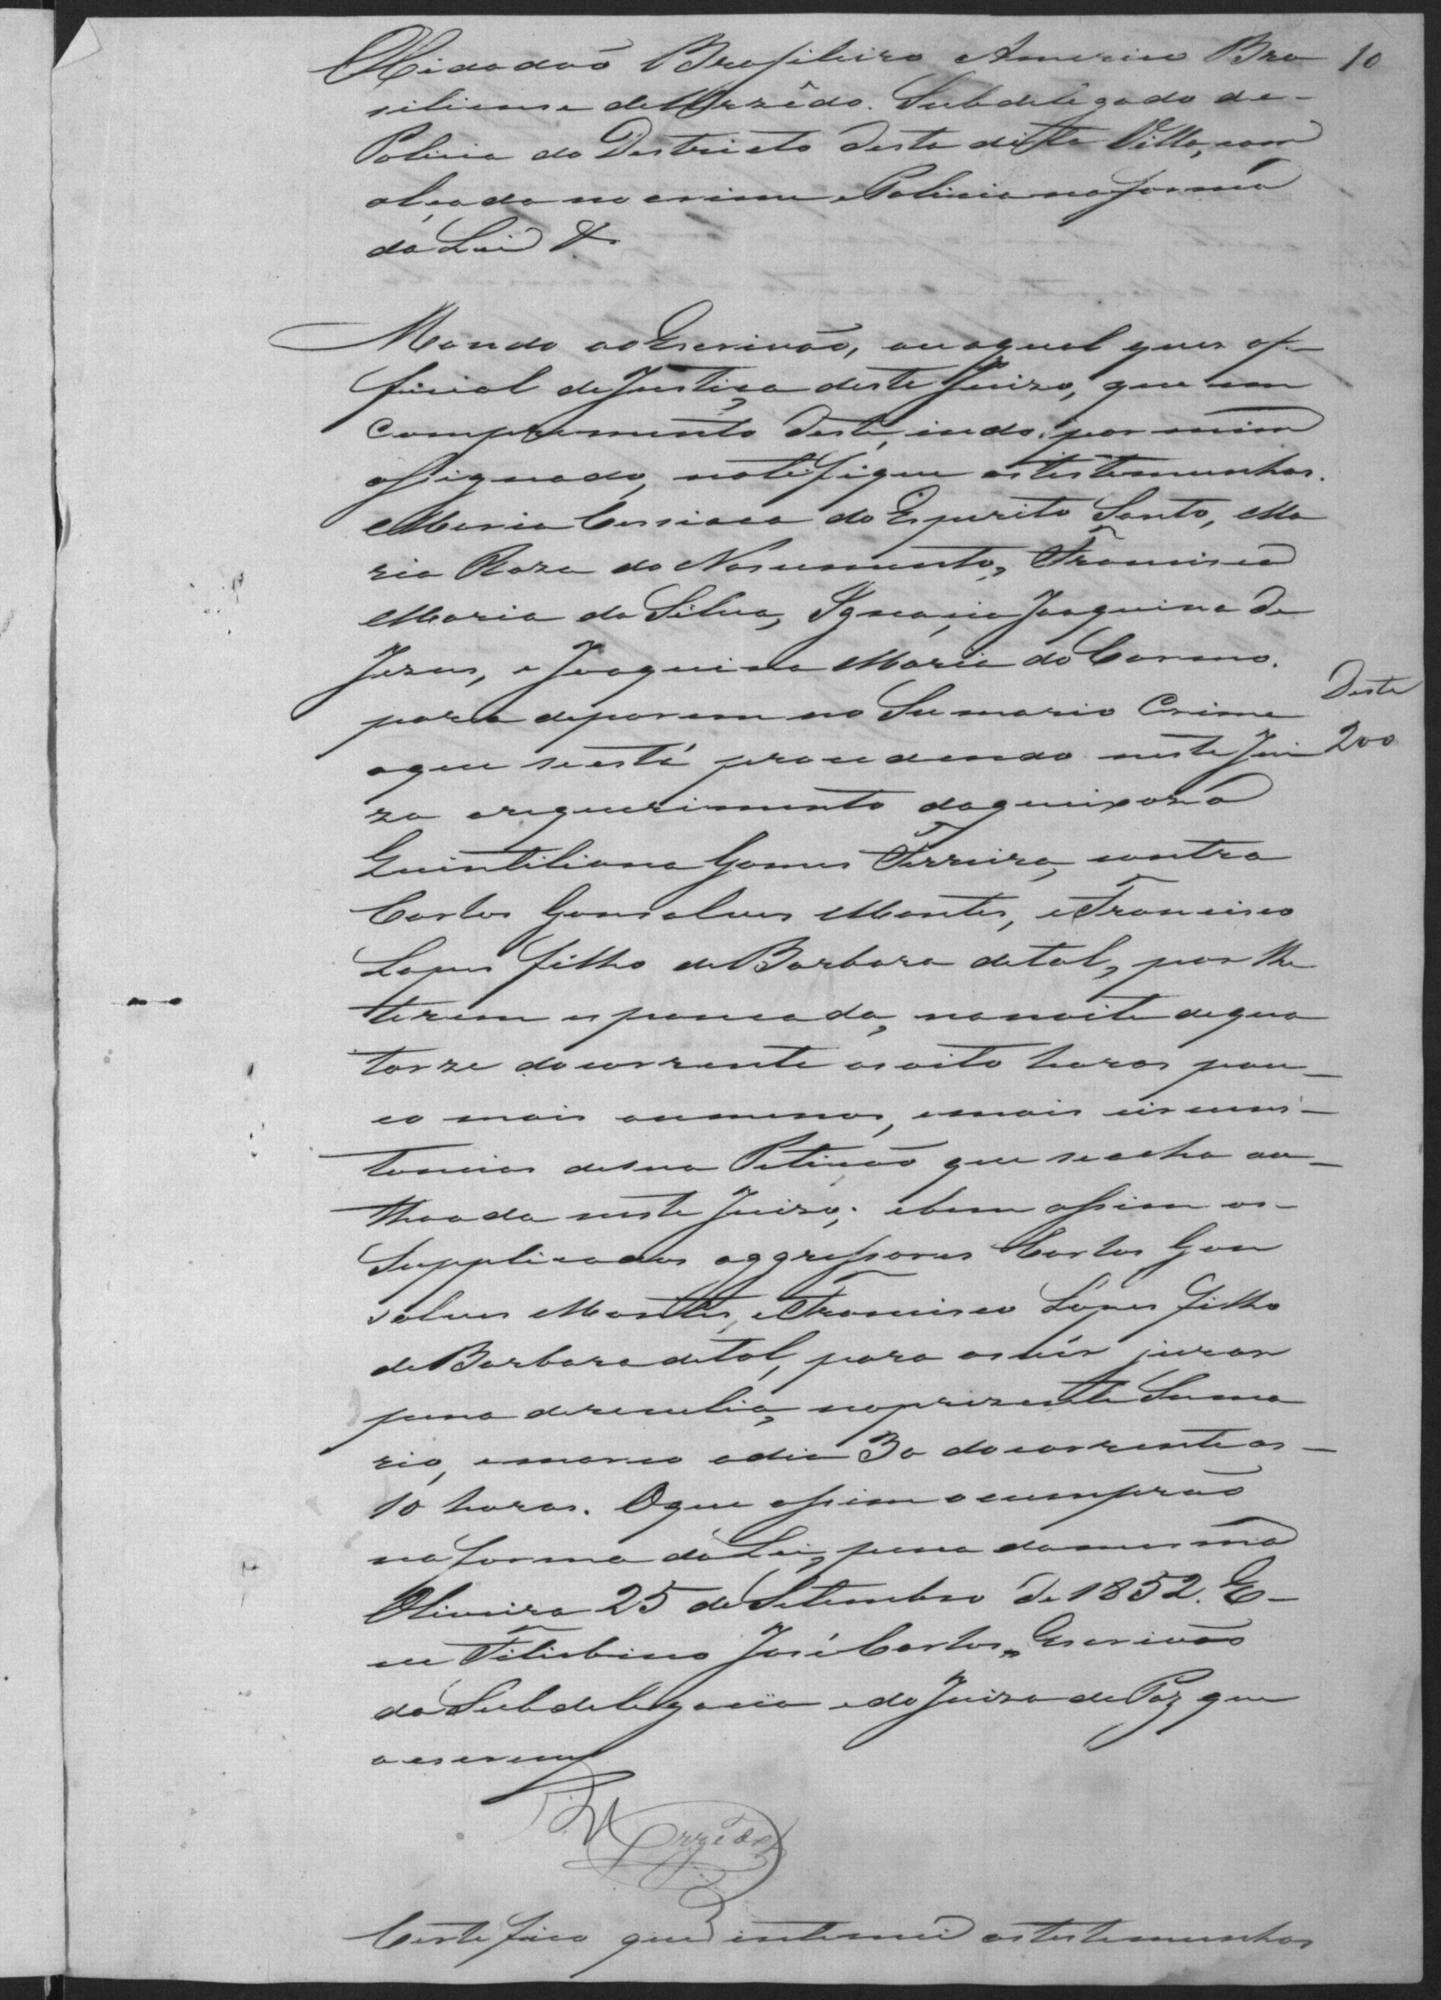 OCidadaõ Brasileiro Americo Bra 10
siliense de Urzêdo. Subdelegado de-
Policia do Destricto desta dita Villa, com
alçada no crime e Policia na forma
da Lei &
Mando ao Escrivaõ, ou aqual quer of-
ficial de Justiça deste Juizo, que em
comprimento deste, indo por mim
assignado, notifique as testemunhas.
Maria do Espirito Santo, Ma
ria Roza do Nascimento, Francisca
Maria da Silva, Ignacia Joaquina de
Jezus, e Joaquina Maria do Carmo.
para deporem no Sumario Crime
aque se está procedendo neste Jui
zo arequerimento daqueixosa
Quintiliana Gomes Ferreira, contra
Carlos Gonsalves Montes, e Francisco
Lopes filho de Barbara detal, por lhe
terem espancada, na noite de qua
torze do corrente as oito horas pou-
co mais ou menos, e mais circuns-
tancias desua Petiçaõ que se acha au-
thoada neste Juizo; e bem assim os-
Supplicados aggressores Carlos Gon
salves Montes, e Francisco Lopes filho
de Barbara detal, para as vêr jurar
pena derevelia, no prezente Suma
rio, e marco o dia 30 do corrente as-
10 horas. Oque assim o cumpraõ
na forma da Lei, pena da mesma
Oliveira 25 de Setembro de 1852. E-
eu Felisbino José Carlos, Escrivaõ
da Subdelegacia e do Juizo de Paz que
o escrevy
Deste
200
Urzêdo
Certefico que intemei as testemunhas